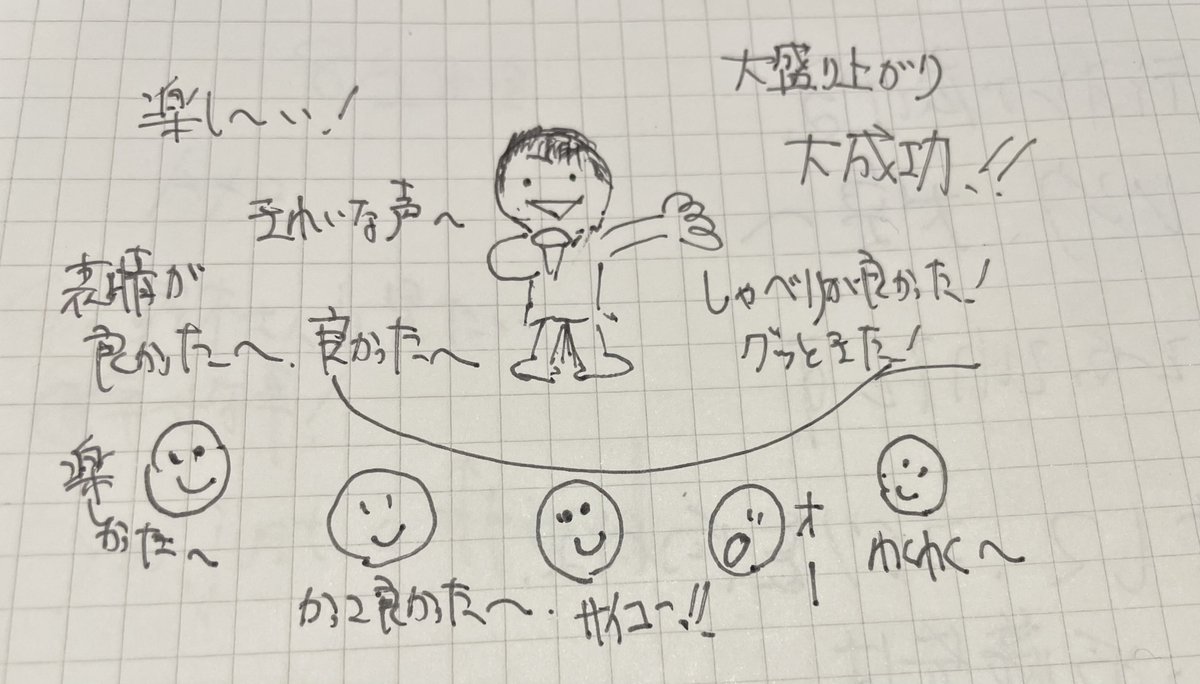 大盛り上がり
大成功!!
楽し〜い!
きれいな声〜
表情が
良かった〜
良かった〜
しゃべりが良かった!
グッときた!
楽
しかった〜
かっこ良かった〜
サイコー!!
オー
わくわく〜